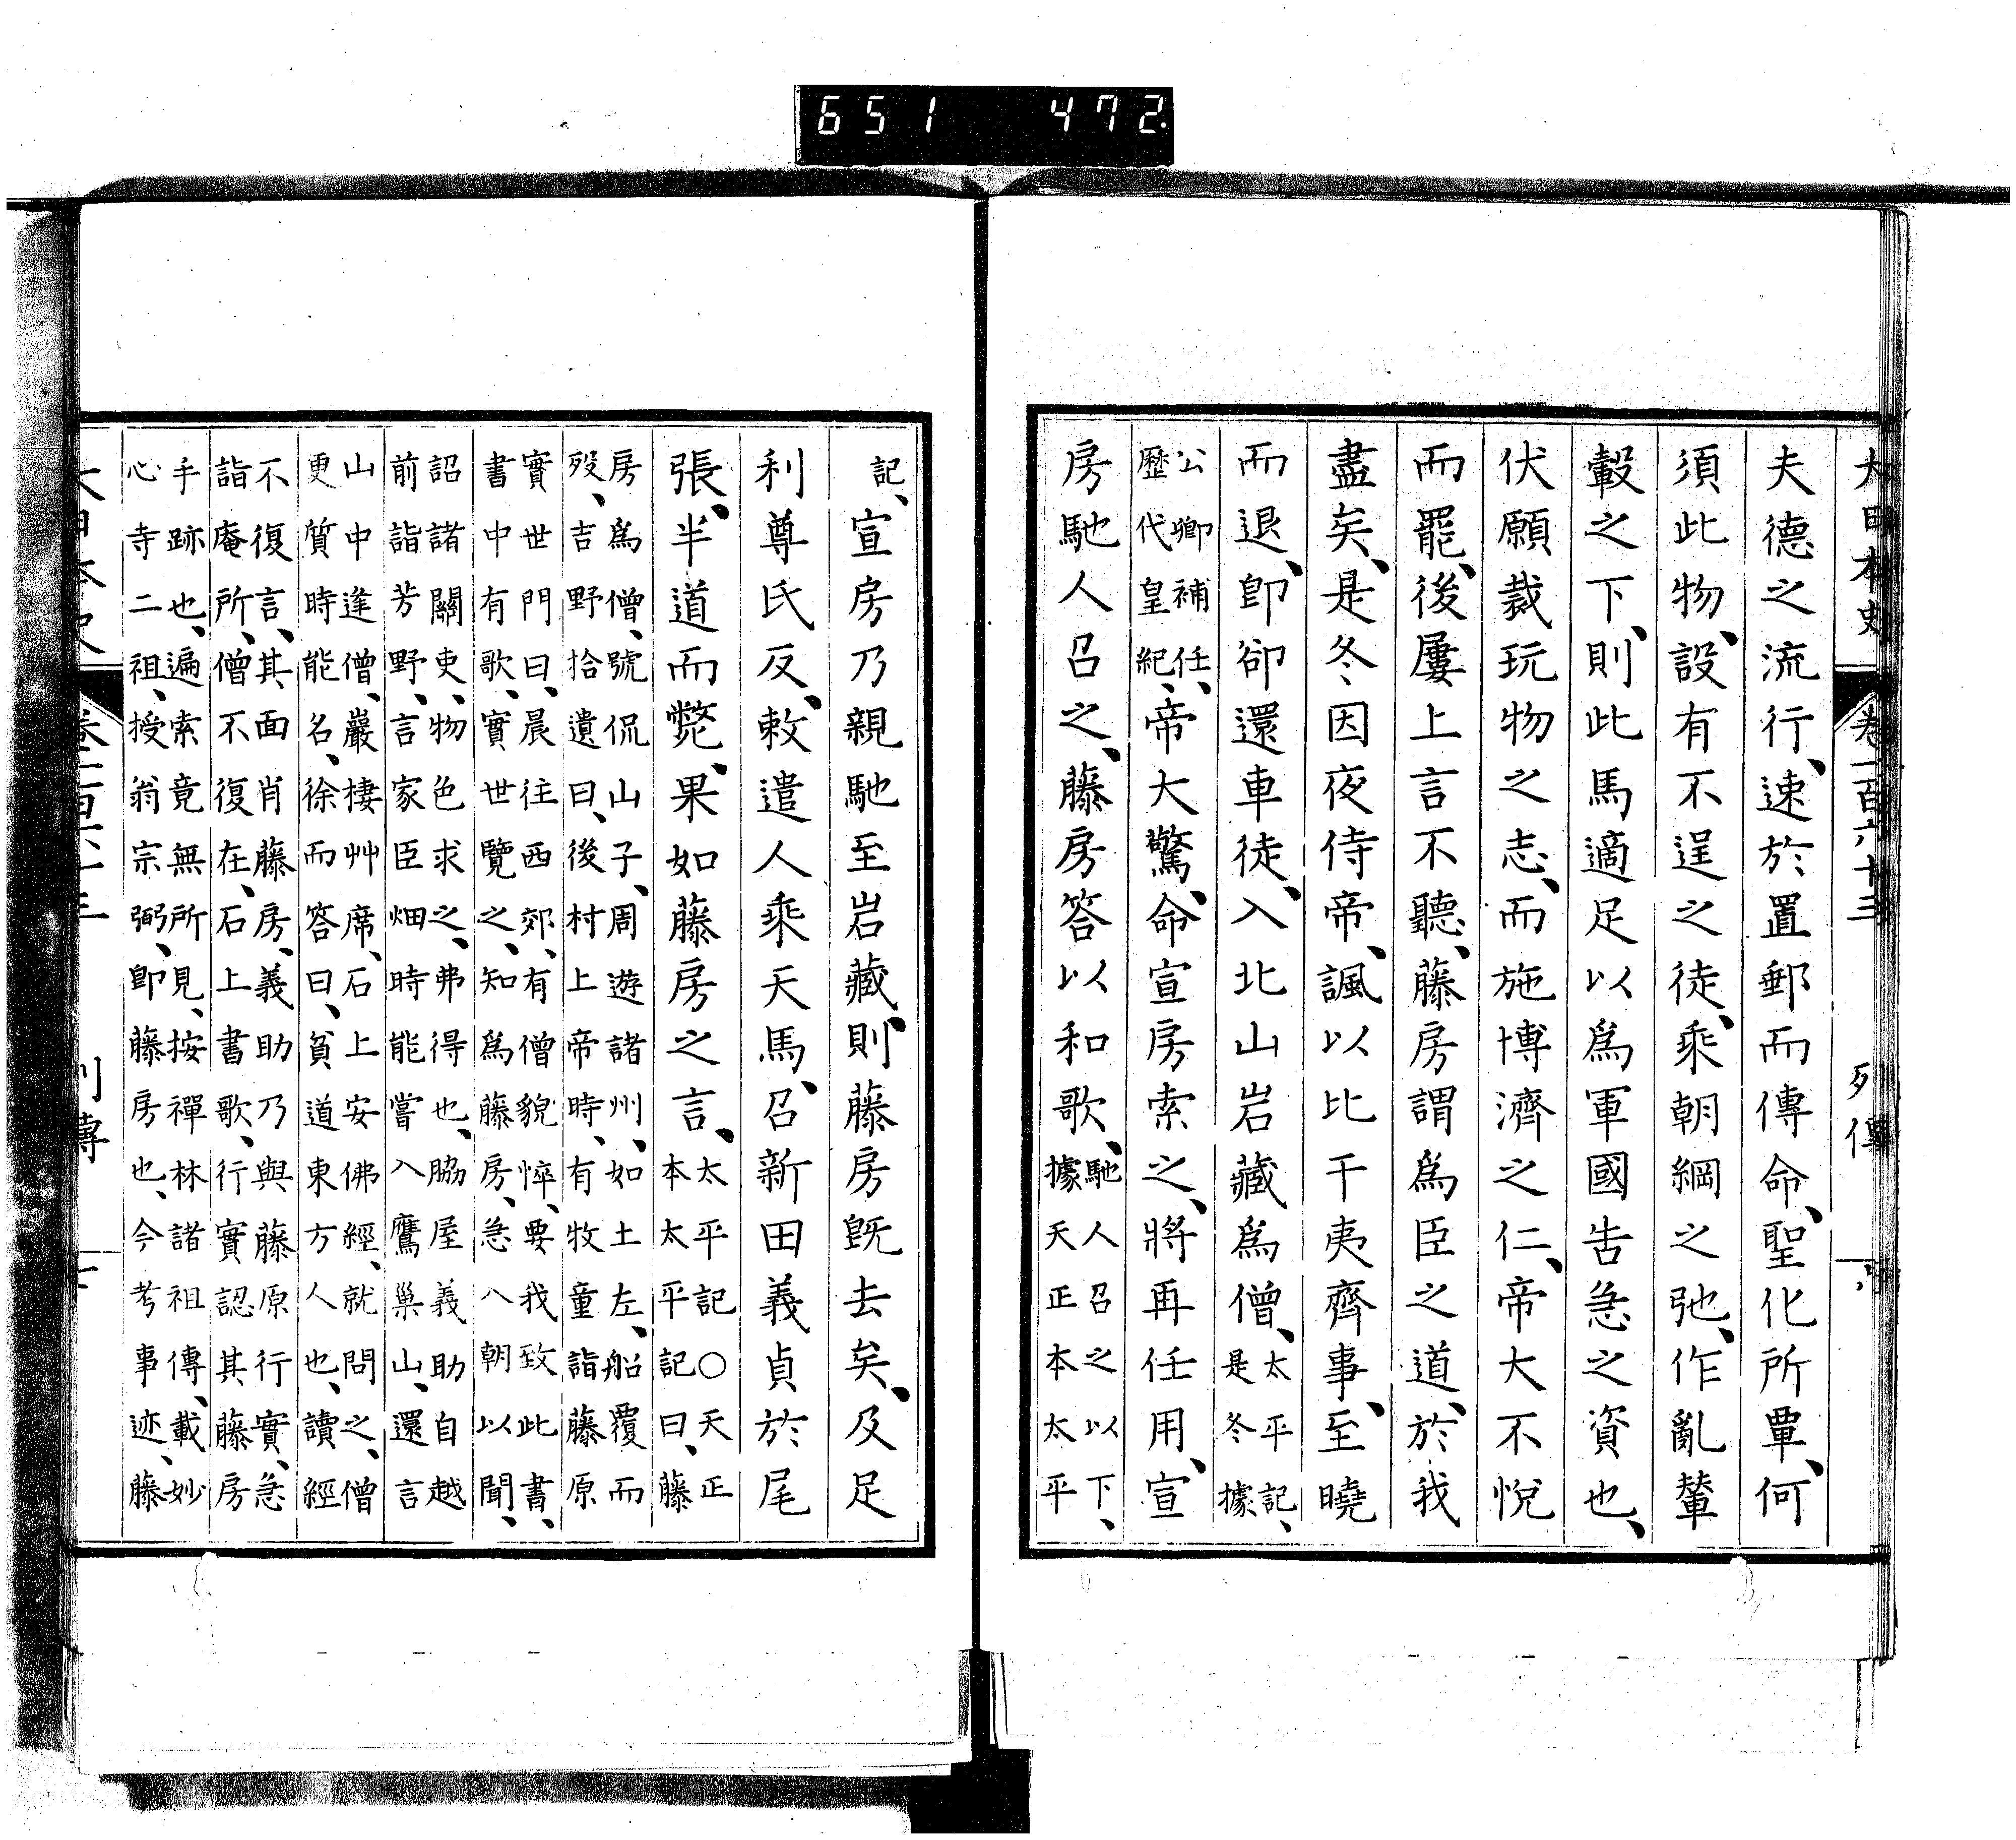 651 472.
大日本史 卷一百六十三 列傳
夫德之流行、速於置郵而傳命、聖化所覃、何
須此物、設有不逞之徒、乘朝綱之弛、作亂輦
轂之下、則此馬適足以爲軍國告急之資也、
伏願裁玩物之志、而施博濟之仁、帝大不悅
而罷、後屢上言不聽、藤房謂爲臣之道、於我
盡矣、是冬、因夜侍帝、諷以比干夷齊事、至曉
而退、卽卻還車徒、入北山岩藏爲僧、太平記、
是冬據
公卿補任、
歷代皇紀、帝大驚、命宣房索之、將再任用、宣
房馳人召之、藤房答以和歌、馳人召之以下、
據天正本太平
記、宣房乃親馳至岩藏、則藤房旣去矣、及足
利尊氏反、敕遣人乘天馬、召新田義貞於尾
張、半道而斃、果如藤房之言、太平記○天正
本太平記曰、藤
房爲僧、號侃山子、周遊諸州、如土左、船覆而
歿、吉野拾遺曰、後村上帝時、有牧童詣藤原
實世門曰、晨往西郊、有僧貌悴、要我致此書、
書中有歌、實世覽之、知爲藤房、急入朝以聞、
詔諸關吏、物色求之、弗得也、脇屋義助自越
前詣芳野、言家臣畑時能嘗入鷹巢山、還言
山中逢僧、巖棲艸席、石上安佛經、就問之、僧
更質時能名、徐而答曰、貧道東方人也、讀經
不復言、其面肖藤房、義助乃與藤原行實、急
詣庵所、僧不復在、石上書歌、行實認其藤房
手跡也、遍索竟無所見、按禪林諸祖傳、載妙
心寺二祖、授翁宗弼、卽藤房也、今考事迹、藤
大日本史 卷一百六十三 列傳